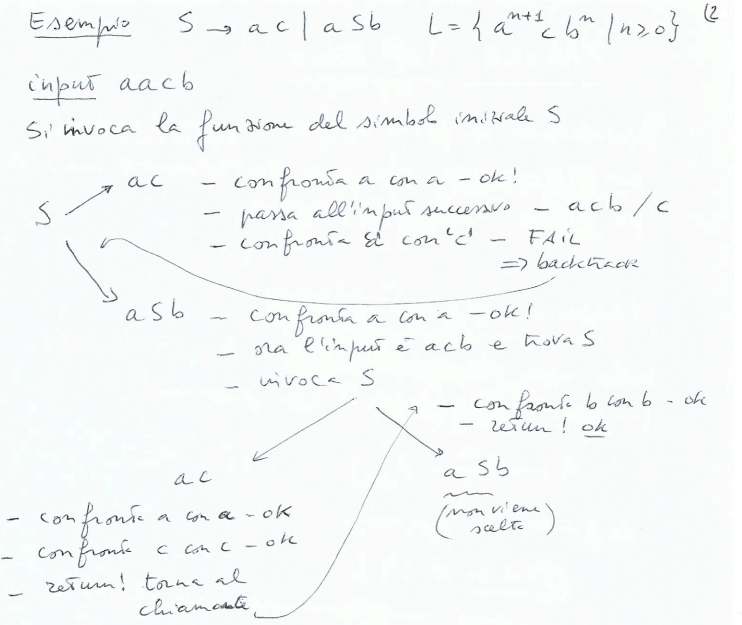 Esempio S → ac | aSb L = { a^{n+1} c b^n | n ≥ 0 } (2
input aacb
Si invoca la funzione del simbolo iniziale S
S
ac - confronta a con a - ok!
- passa all'input successivo - acb / c
- confronta con 'c' - FAIL
=> backtrack
aSb - confronta a con a - ok!
- ora l'input è acb e trova S
- invoca S
- confronta b con b - ok
- return! ok
ac
- confronta a con a - ok
- confronta c con c - ok
- return! torna al
chiamante
aSb
(non viene
scelta)